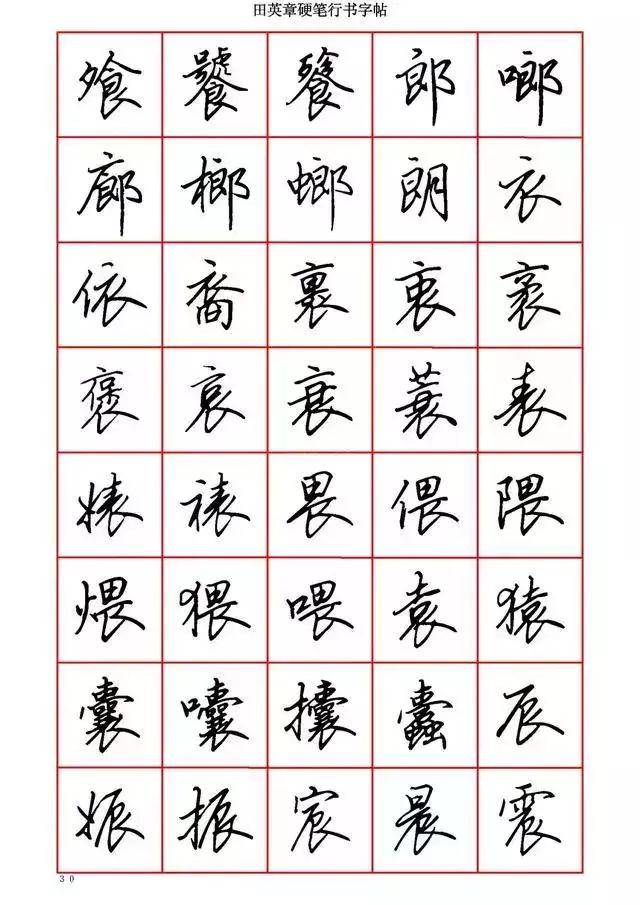 田英章硬笔行书字帖
飧饕餮郎啷
廊榔螂朗衣
依裔裹衷衮
褒哀衰蓑表
婊裱畏偎隈
煨猥喂袁猿
囊囔攮蠹辰
娠振宸晨震
30